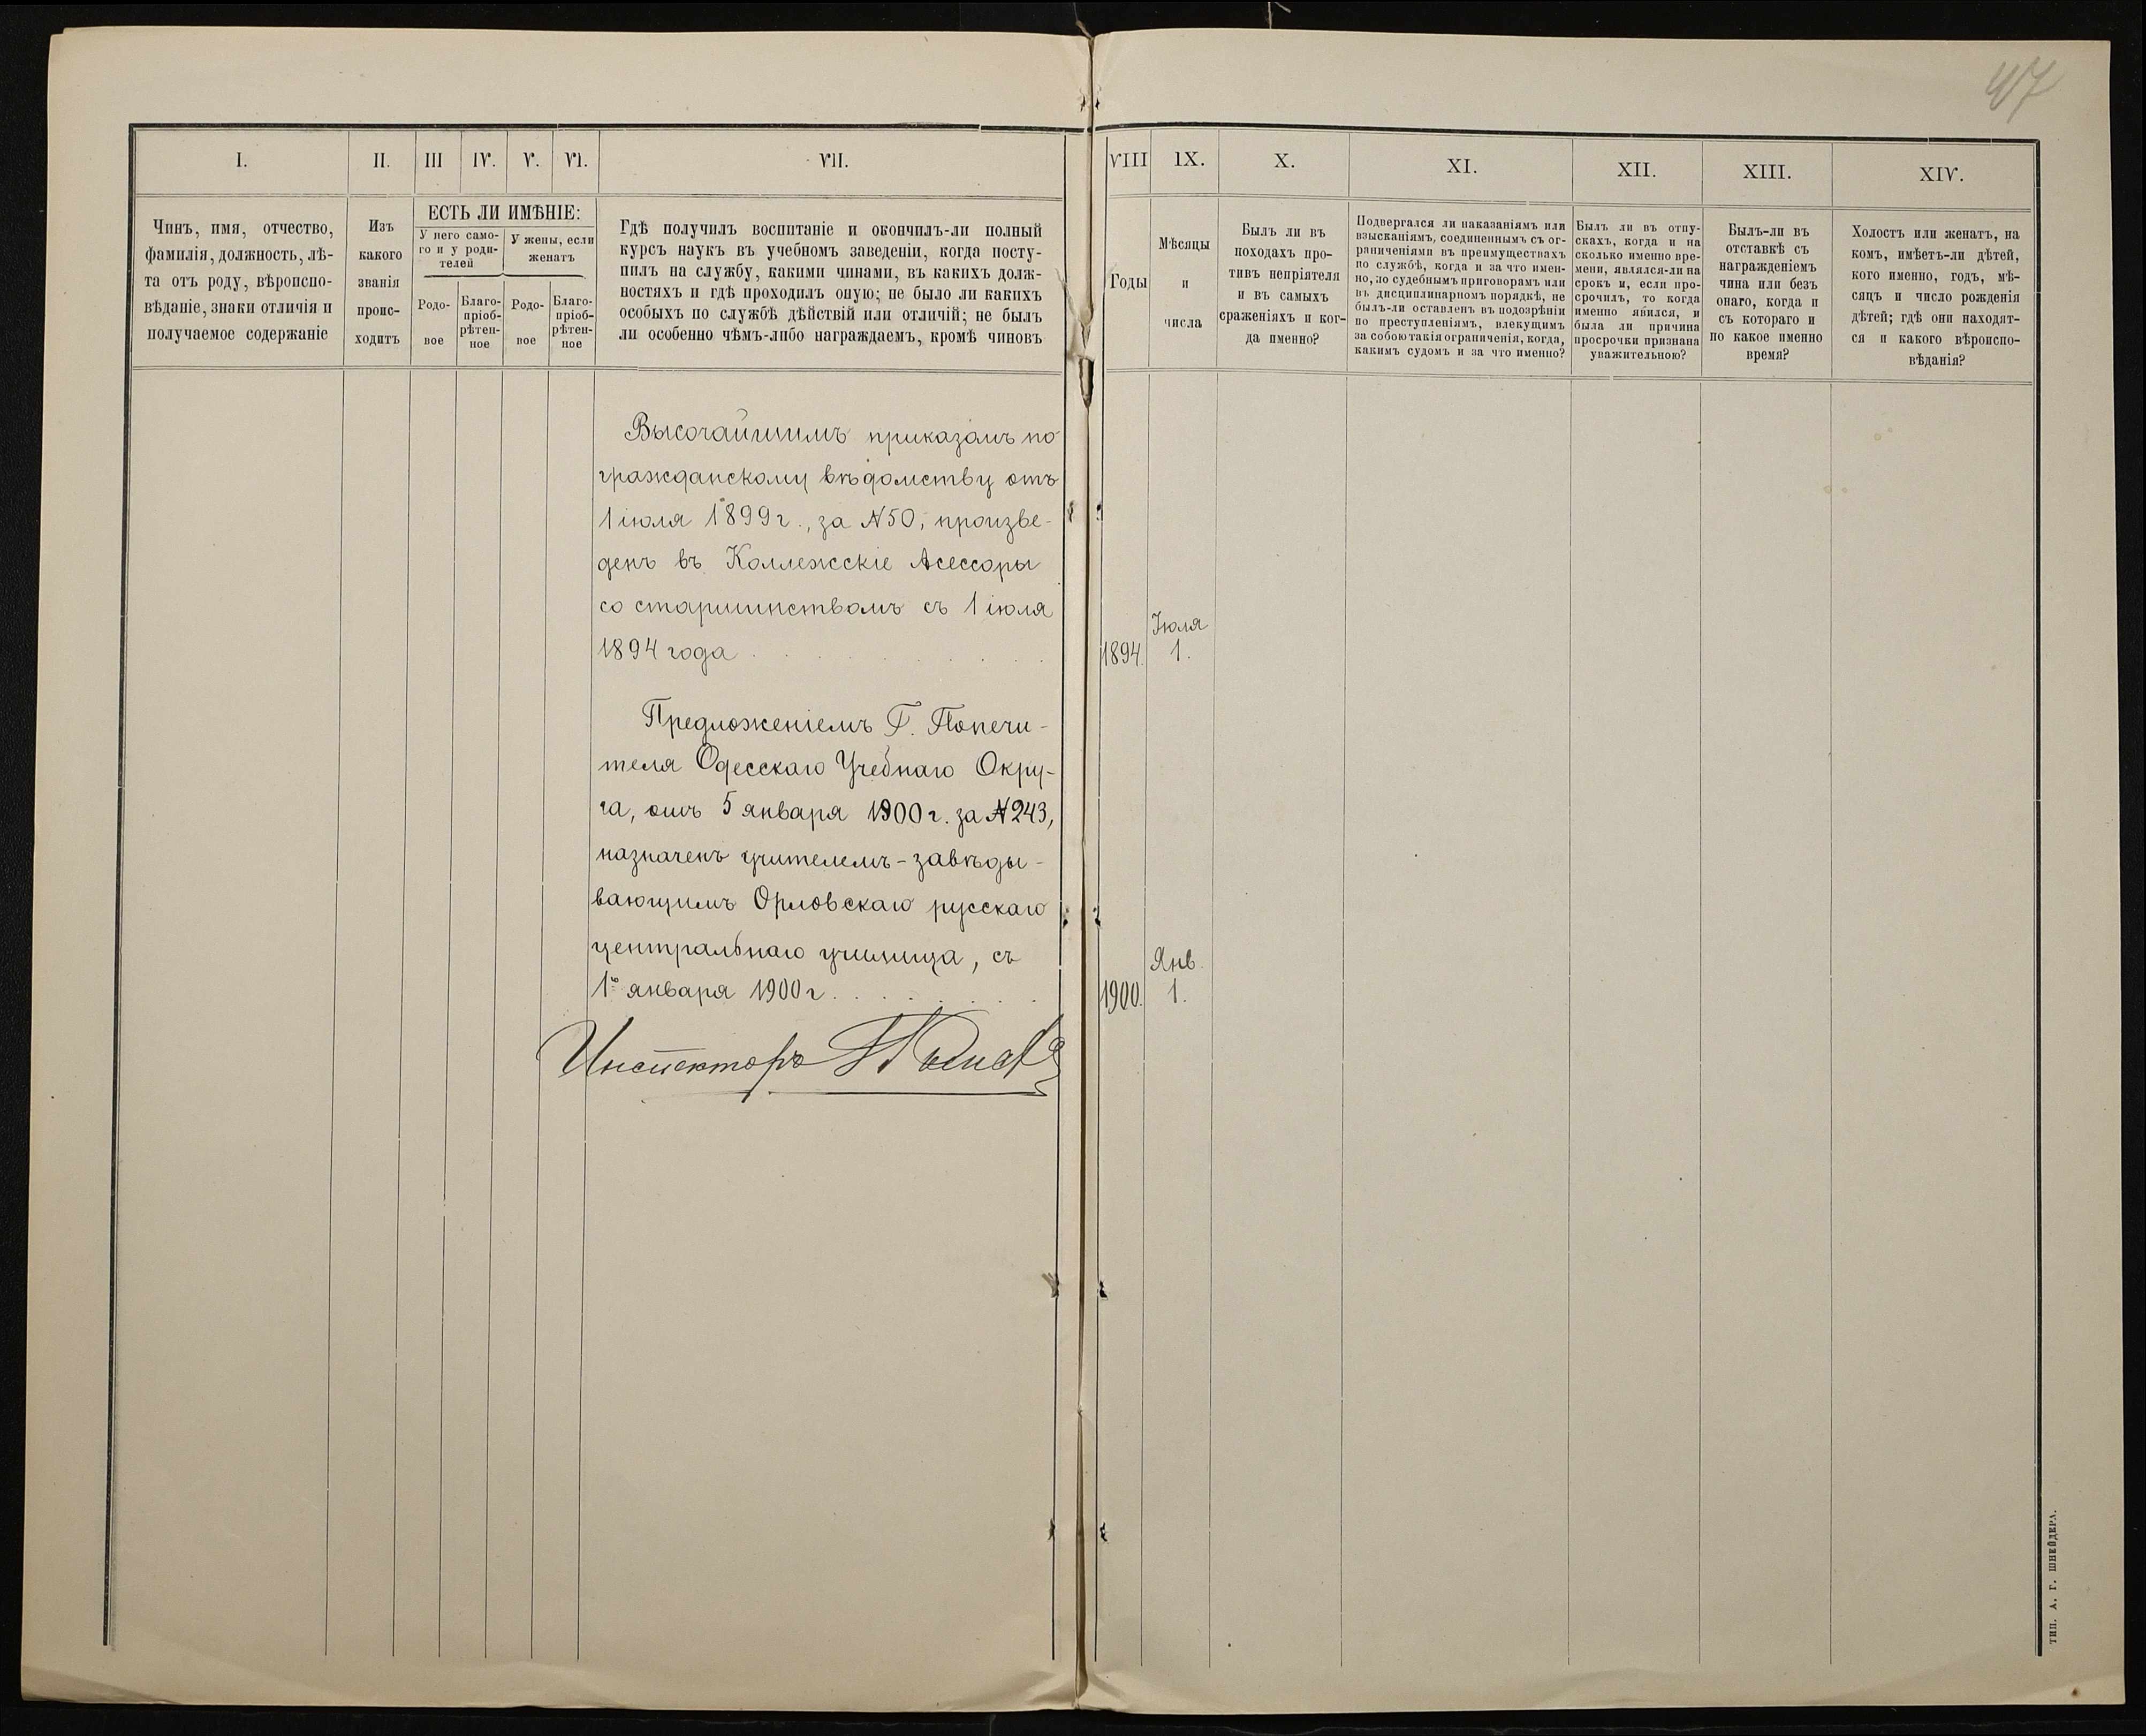 47
I.
II.
III
IV.
V.
VI.
VII.
VIII
IX.
X.
XI.
XII.
XIII.
XIV.
Чинъ, имя, отчество,
фамилія, должность, лѣ-
та отъ роду, вѣроиспо-
вѣданіе, знаки отличія и
получаемое содержаніе
Изъ
какого
званія
проис-
ходитъ
ЕСТЬ ЛИ ИМѢНІЕ:
У него само-
го и у роди-
телей
У жены, если
женатъ
Родо-
вое
Благо-
пріоб-
рѣтен-
ное
Родо-
вое
Благо-
пріоб-
рѣтен-
ное
Гдѣ получилъ воспитаніе и окончилъ-ли полный
курсъ наукъ въ учебномъ заведеніи, когда посту-
пилъ на службу, какими чинами, въ какихъ долж-
ностяхъ и гдѣ проходилъ оную; не было ли какихъ
особыхъ по службѣ дѣйствій или отличій; не былъ
ли особенно чѣмъ-либо награждаемъ, кромѣ чиновъ
Годы
Мѣсяцы
и
числа
Былъ ли въ
походахъ про-
тивъ непріятеля
и въ самыхъ
сраженіяхъ и ког-
да именно?
Подвергался ли наказаніямъ или
взысканіямъ, соединеннымъ съ ог-
раниченіями въ преимуществахъ
по службѣ, когда и за что имен-
но, по судебнымъ приговорамъ или
въ дисциплинарномъ порядкѣ, не
былъ-ли оставленъ въ подозрѣніи
по преступленіямъ, влекущимъ
за собою такія ограниченія, когда,
какимъ судомъ и за что именно?
Былъ ли въ отпу-
скахъ, когда и на
сколько именно вре-
мени, являлся-ли на
срокъ и, если про-
срочилъ, то когда
именно явился, и
была ли причина
просрочки признана
уважительною?
Былъ-ли въ
отставкѣ съ
награжденіемъ
чина или безъ
онаго, когда и
съ котораго и
по какое именно
время?
Холостъ или женатъ, на
комъ, имѣетъ-ли дѣтей,
кого именно, годъ, мѣ-
сяцъ и число рожденія
дѣтей; гдѣ они находят-
ся и какого вѣроиспо-
вѣданія?
Высочайшимъ приказомъ по
гражданскому вѣдомству отъ
1 іюля 1899 г., за №50, произве-
денъ въ Коллежскіе Асессоры
со старшинствомъ съ 1 іюля
1894 года
Іюля
1894. 1.
Предложеніемъ Г. Попечи-
теля Одесскаго Учебнаго Окру-
га, отъ 5 января 1900 г. за №243,
назначенъ учителемъ-завѣды-
вающимъ Орловскаго русскаго
центральнаго училища, съ
1го января 1900 г.
Янв.
1900. 1.
Инспекторъ
ТИП. А. Г. ШНЕЙДЕРА.